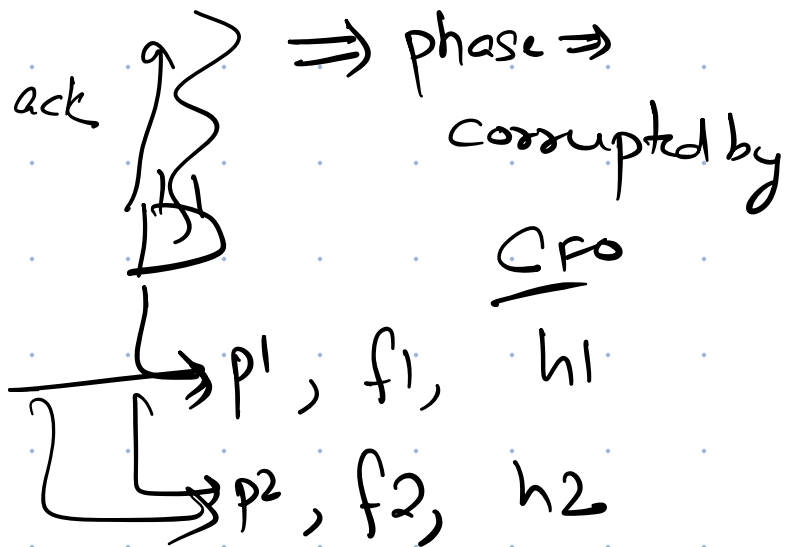 ⇒ phase ⇒
ack
corrupted by
CFO
p1, f1, h1
p2, f2, h2